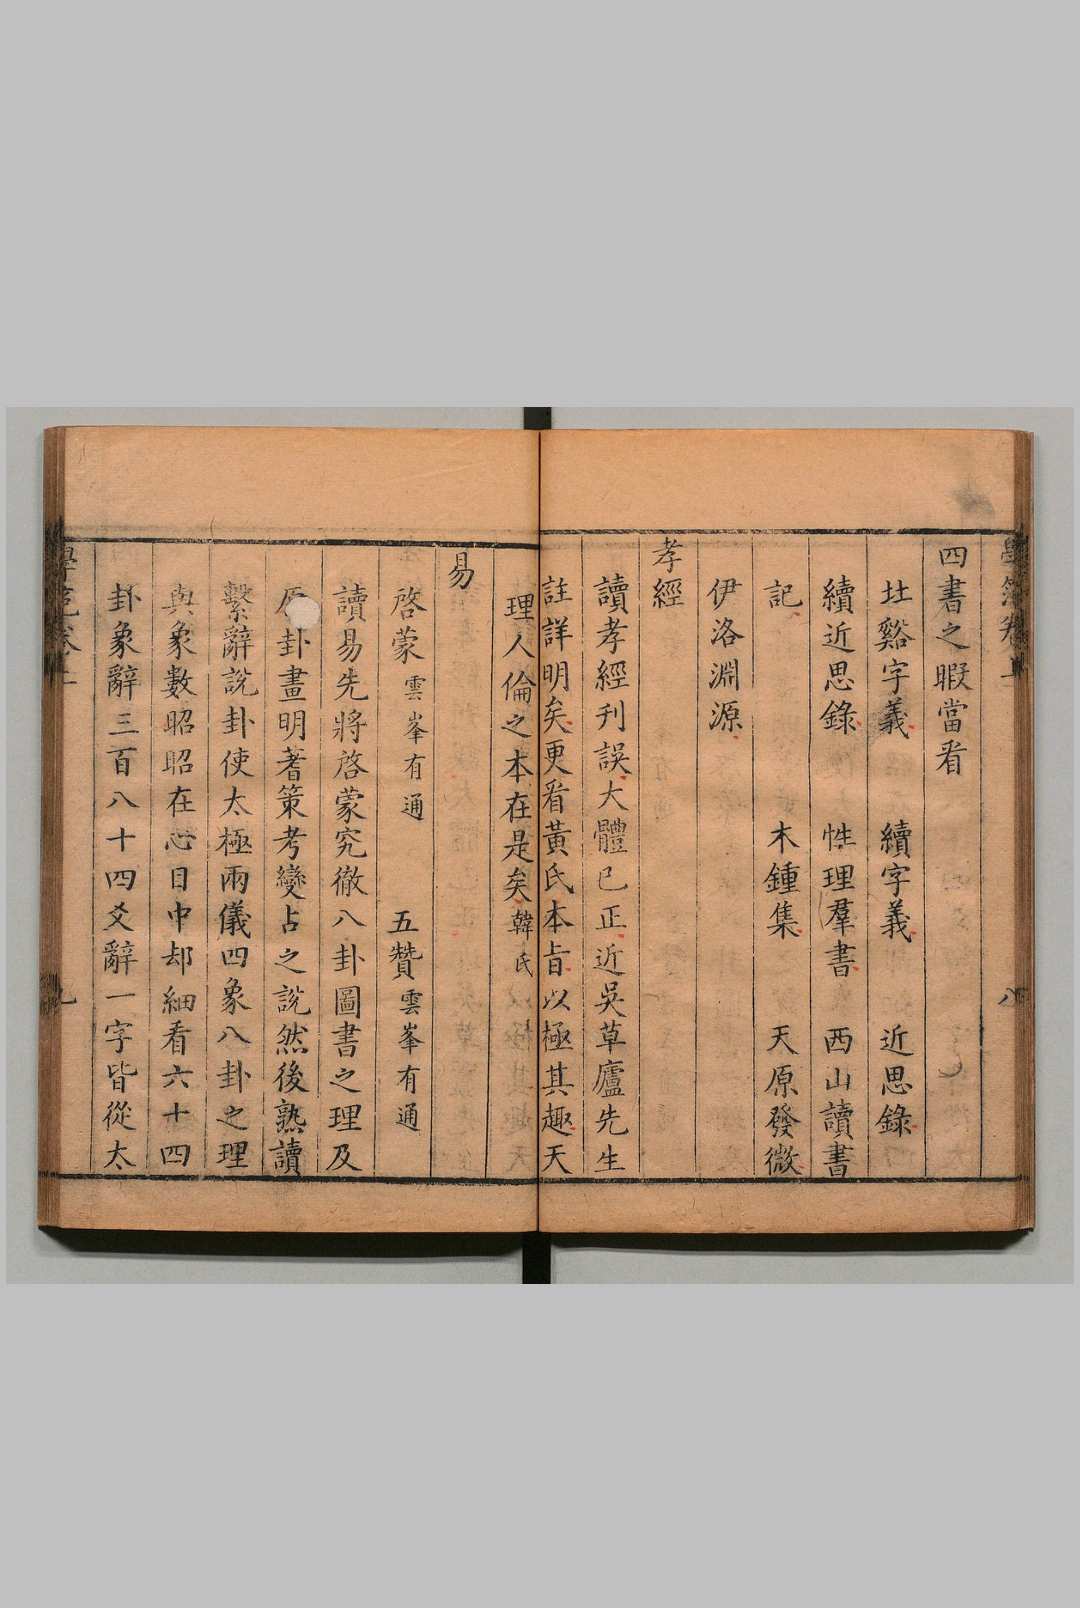 四書之暇當看
北谿字義 續字義 近思錄
續近思錄 性理羣書 西山讀書
記 木鍾集 天原發微
伊洛淵源
孝經
讀孝經刊誤大體已正近吳草廬先生
註詳明矣更看黃氏本旨以極其趣天
理人倫之本在是矣韓氏
易
啓蒙雲峯有通 五贊雲峯有通
讀易先將啓蒙究徹八卦圖書之理及
原卦畫明蓍策考變占之說然後熟讀
繫辭說卦使太極兩儀四象八卦之理
與象數昭昭在心目中却細看六十四
卦象辭三百八十四爻辭一字皆從太
學範卷上
九